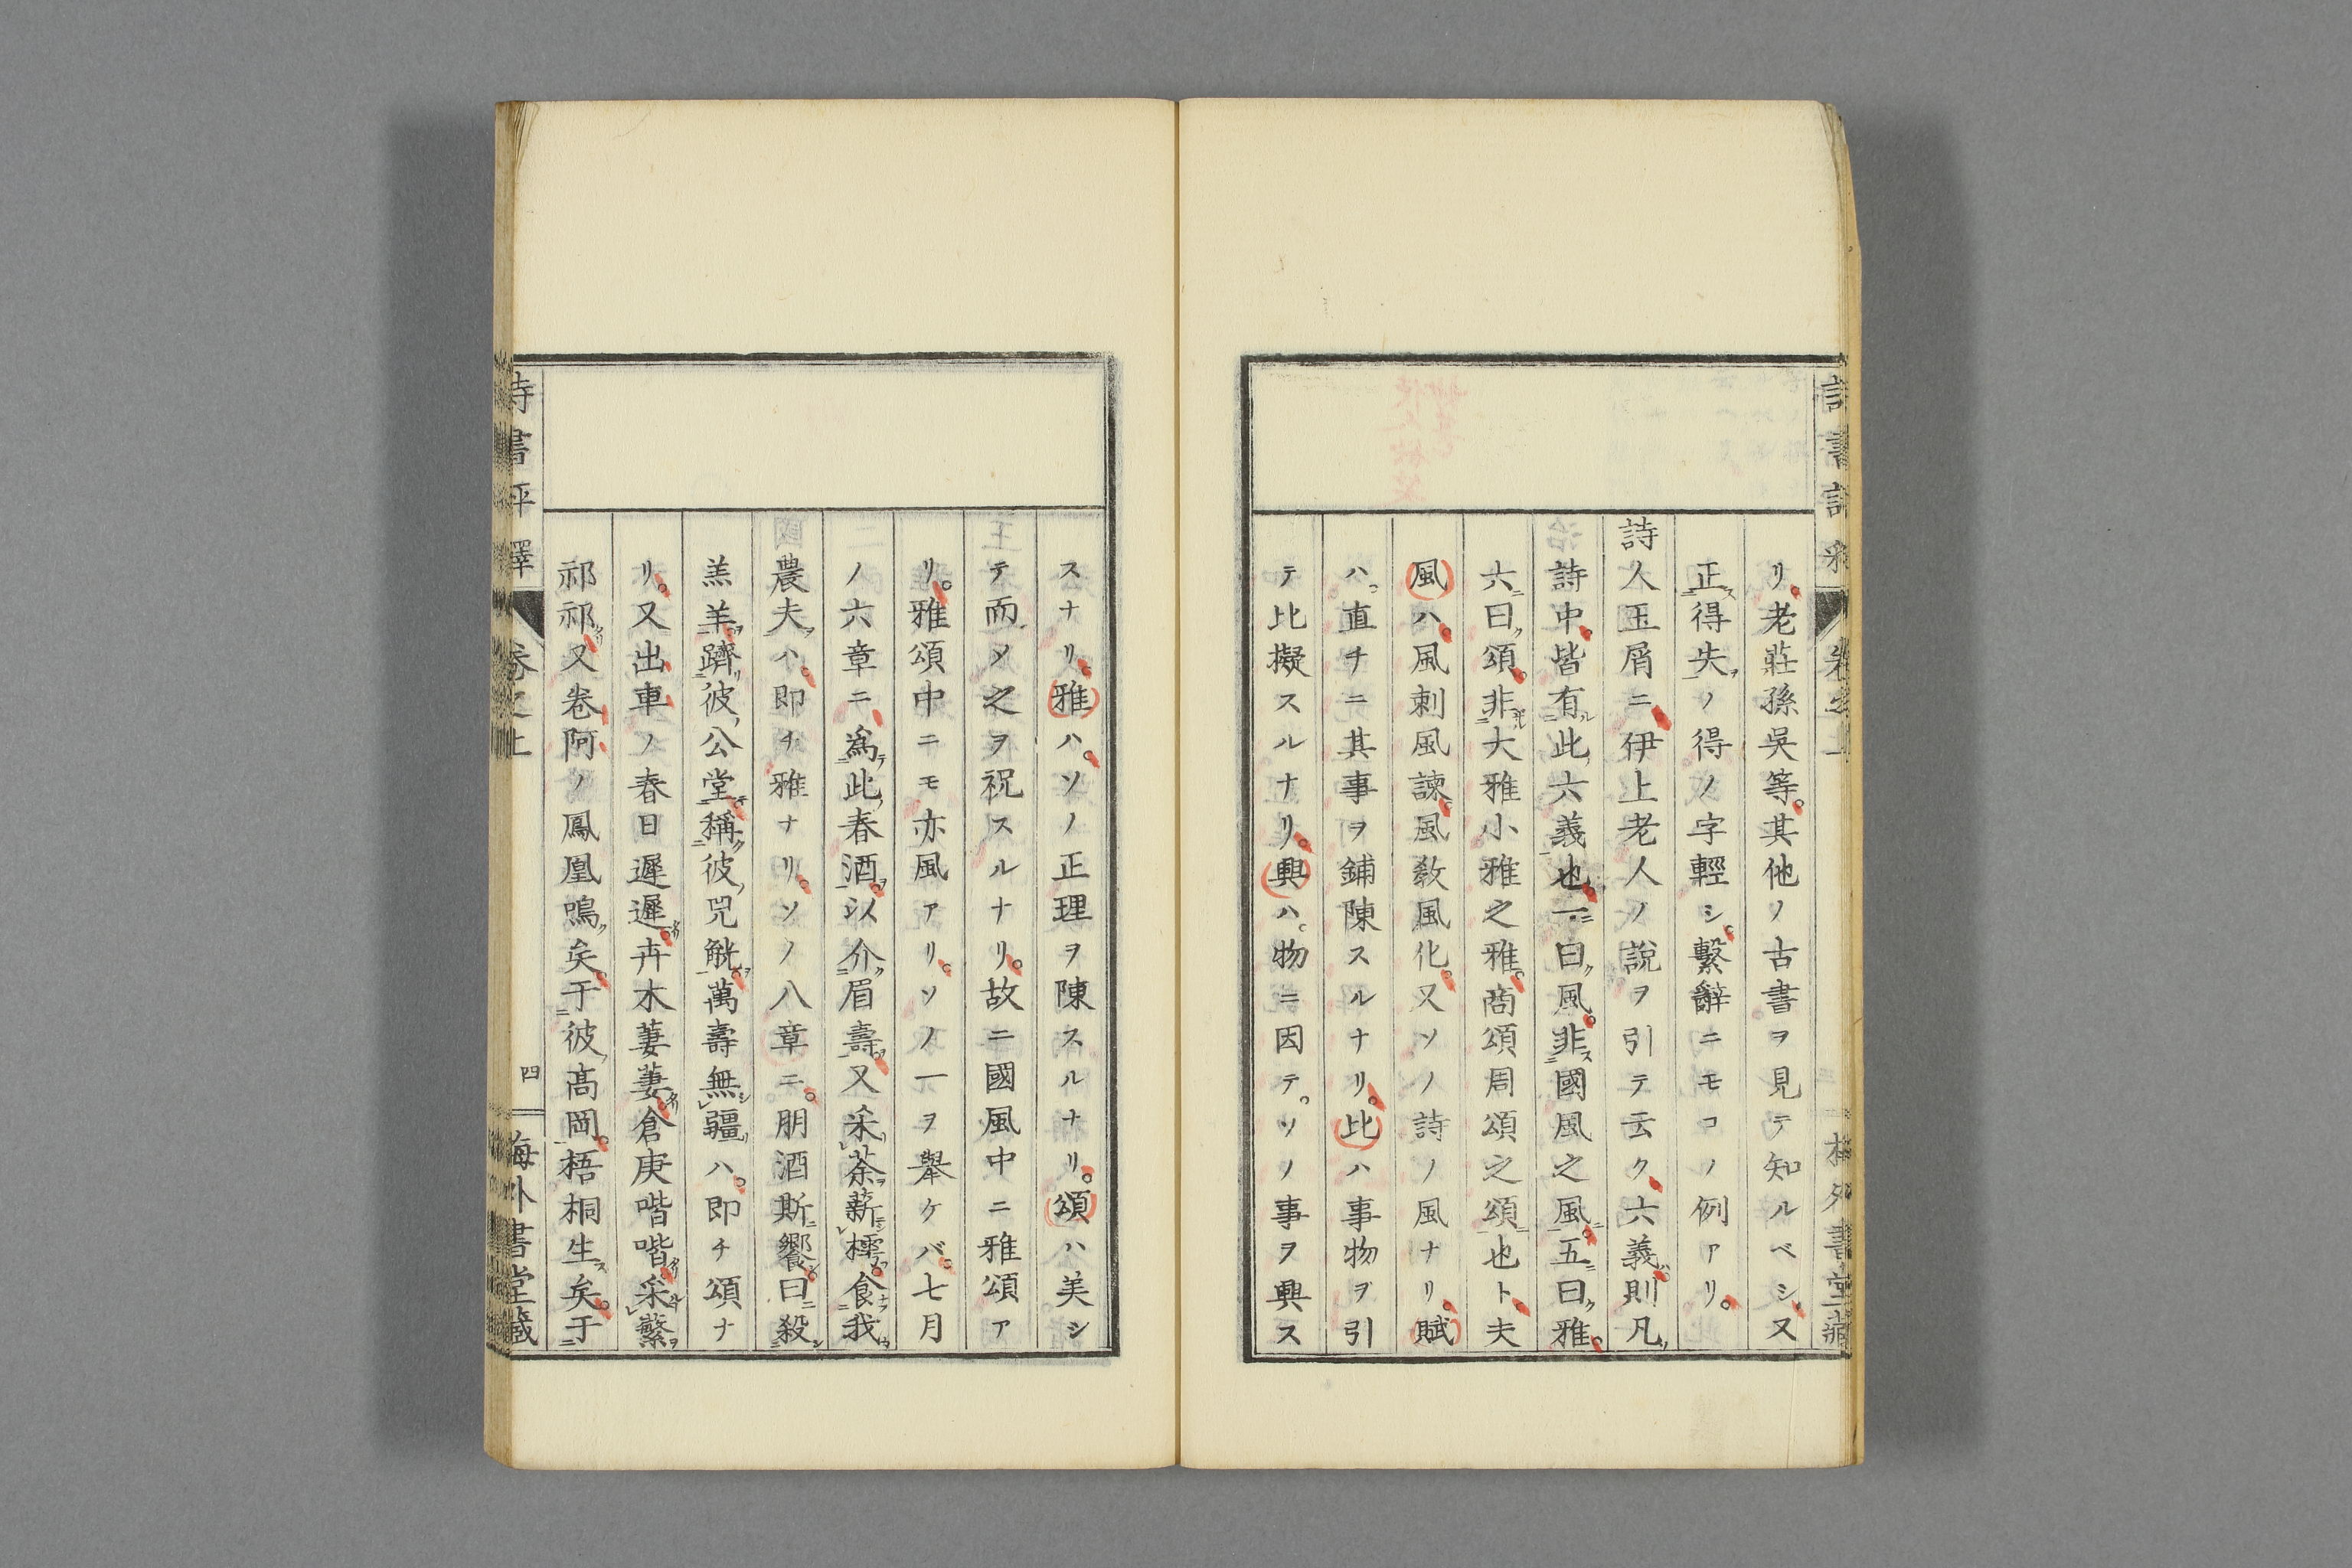 リ。老莊孫吳等。其他ノ古書ヲ見テ知ルベシ、又
正得失ノ得ノ字輕シ。繫辭ニモコノ例アリ。
詩人玉屑ニ伊上老人ノ說ヲ引テ云ク六義則凡
詩中皆有此六義也一曰風。非國風之風。五曰雅。
六曰頌。非大雅小雅之雅。商頌周頌之頌也ト夫
風ハ。風刺風諫風敎風化。又ソノ詩ノ風ナリ。賦
ハ。直チニ其事ヲ鋪陳スルナリ。比ハ事物ヲ引
テ比擬スルナリ。興ハ。物ニ因テ。ソノ事ヲ興ス
スナリ。雅ハ。ソノ正理ヲ陳スルナリ。頌ハ美シ
テ而ソ之ヲ祝スルナリ。故ニ國風中ニ雅頌ア
リ。雅頌中ニモ亦風アリ。ソノ一ヲ舉ケバ。七月
ノ六章ニ爲此春酒。以介眉壽。又采荼薪樗。食我
農夫ハ。即チ雅ナリ。ソノ八章ニ。朋酒斯饗。曰殺
羔羊躋彼公堂稱彼兕觥。萬壽無疆ハ。即チ頌ナ
リ。又出車ノ春日遲遲。卉木萋萋倉庚喈喈采蘩
祁祁又卷阿ノ鳳凰鳴矣。于彼高岡。梧桐生矣。于
卷之上
四
海外書堂藏